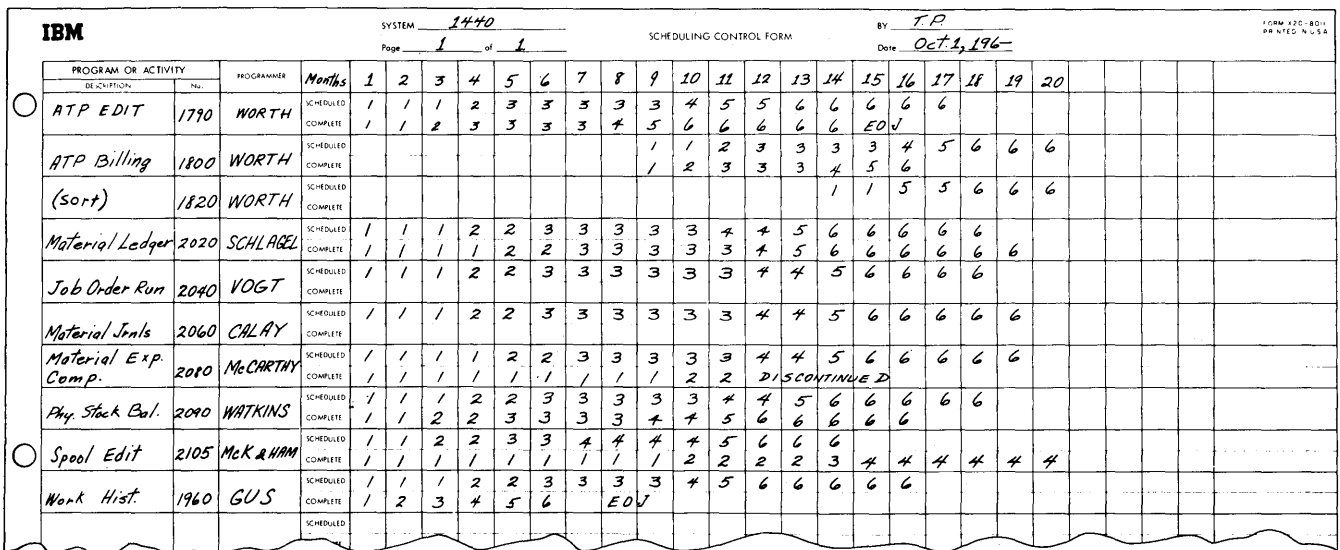 IBM
SYSTEM 1440
Page 1 of 1
SCHEDULING CONTROL FORM
BY T.P.
Date Oct. 1, 196-
FORM X20-8011
PRINTED IN U.S.A
PROGRAM OR ACTIVITY PROGRAMMER Months 1 2 3 4 5 6 7 8 9 10 11 12 13 14 15 16 17 18 19 20
DESCRIPTION No.
ATP EDIT 1790 WORTH
SCHEDULED 1 1 1 2 3 3 3 3 3 4 5 5 6 6 6 6 6
COMPLETE 1 1 2 3 3 3 3 4 5 6 6 6 6 6 EOJ
ATP Billing 1800 WORTH
SCHEDULED 1 1 2 3 3 3 3 4 5 6 6 6
COMPLETE 1 2 3 3 3 4 5 6
(Sort) 1820 WORTH
SCHEDULED 1 1 5 5 6 6 6
COMPLETE
Material Ledger 2020 SCHLAGEL
SCHEDULED 1 1 1 2 2 3 3 3 3 3 4 4 5 6 6 6 6 6
COMPLETE 1 1 1 1 2 2 3 3 3 3 3 4 5 6 6 6 6 6 6
Job Order Run 2040 VOGT
SCHEDULED 1 1 1 2 2 3 3 3 3 3 3 4 4 5 6 6 6 6
COMPLETE
Material Jrnls 2060 CALAY
SCHEDULED 1 1 1 2 2 3 3 3 3 3 3 4 4 5 6 6 6 6 6
COMPLETE
Material Exp. Comp. 2080 McCARTHY
SCHEDULED 1 1 1 1 2 2 3 3 3 3 3 4 4 5 6 6 6 6 6
COMPLETE 1 1 1 1 1 1 1 1 1 2 2 DISCONTINUED
Phy. Stock Bal. 2090 WATKINS
SCHEDULED 1 1 1 2 2 3 3 3 3 3 4 4 5 6 6 6 6 6
COMPLETE 1 1 2 2 3 3 3 3 4 4 5 6 6 6 6 6
Spool Edit 2105 McK & HAM
SCHEDULED 1 1 2 2 3 3 4 4 4 4 5 6 6 6
COMPLETE 1 1 1 1 1 1 1 1 1 2 2 2 2 3 4 4 4 4 4 4
Work Hist. 1960 GUS
SCHEDULED 1 1 1 2 2 3 3 3 3 4 5 6 6 6 6 6
COMPLETE 1 2 3 4 5 6 EOJ
SCHEDULED